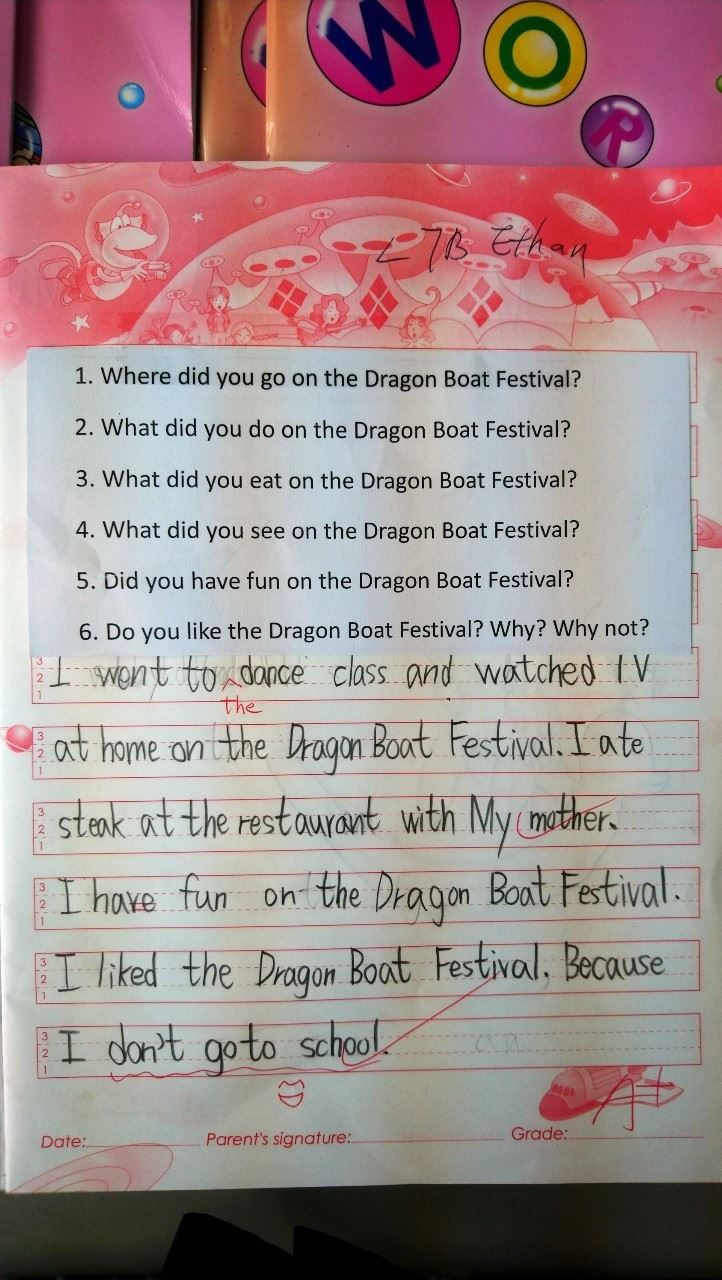 WOR
L7B Ethan
1. Where did you go on the Dragon Boat Festival?
2. What did you do on the Dragon Boat Festival?
3. What did you eat on the Dragon Boat Festival?
4. What did you see on the Dragon Boat Festival?
5. Did you have fun on the Dragon Boat Festival?
6. Do you like the Dragon Boat Festival? Why? Why not?
3
2
1
I went to dance class and watched TV
the
3
2
1
at home on the Dragon Boat Festival. I ate
3
2
1
steak at the restaurant with My mother.
3
2
1
I have fun on the Dragon Boat Festival.
3
2
1
I liked the Dragon Boat Festival. Because
3
2
1
I don't go to school.
Date: Parent's signature: Grade: A+